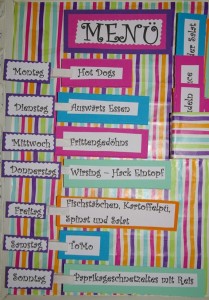 MENÜ
Montag
Hot Dogs
Dienstag
Auswärts Essen
Mittwoch
Frittengedöhns
Donnerstag
Wirsing – Hack Eintopf
Freitag
Fischstäbchen, Kartoffelpü,
Spinat und Salat
Samstag
ToMo
Sonntag
Paprikageschnetzeltes mit Reis
Salat